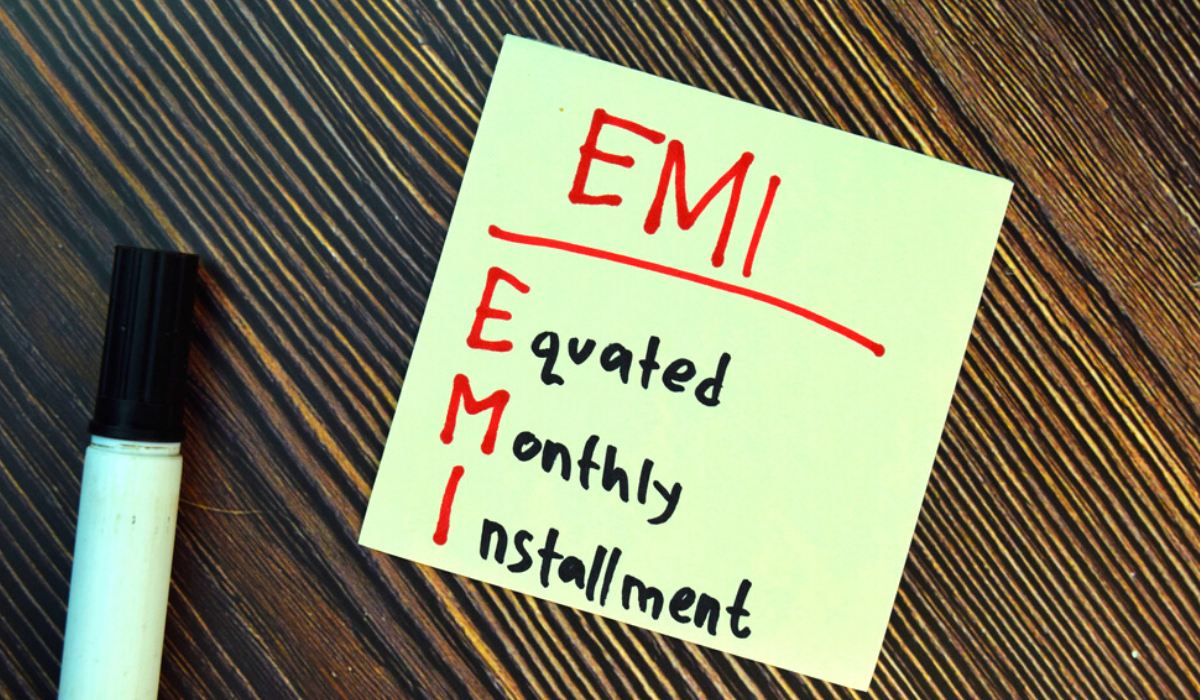 EMI
Equated
Monthly
Installment